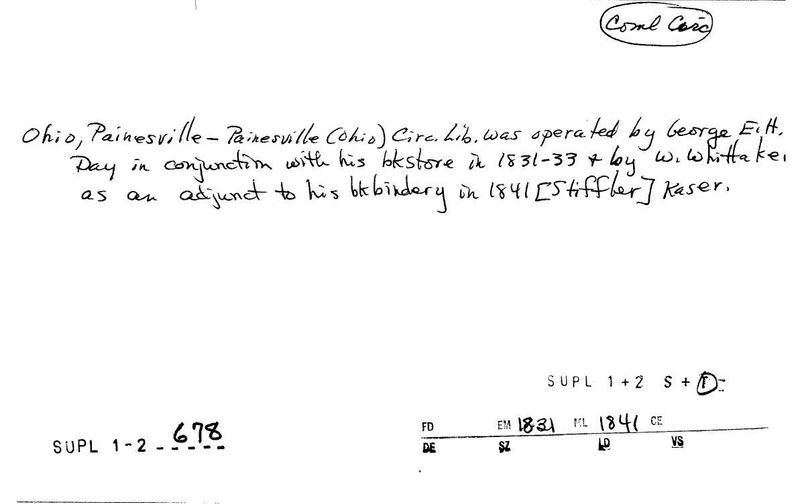 Coml Circ
Ohio, Painesville – Painesville (Ohio) Circ. Lib. was operated by George E. H.
Day in conjunction with his bkstore in 1831-33 + by W. Whittaker
as an adjunct to his bkbindery in 1841 [Stiffler] Kaser.
SUPL 1+2 S + T
FD EM 1831 ML 1841 CE
SUPL 1-2 - 678
DE SZ LD VS